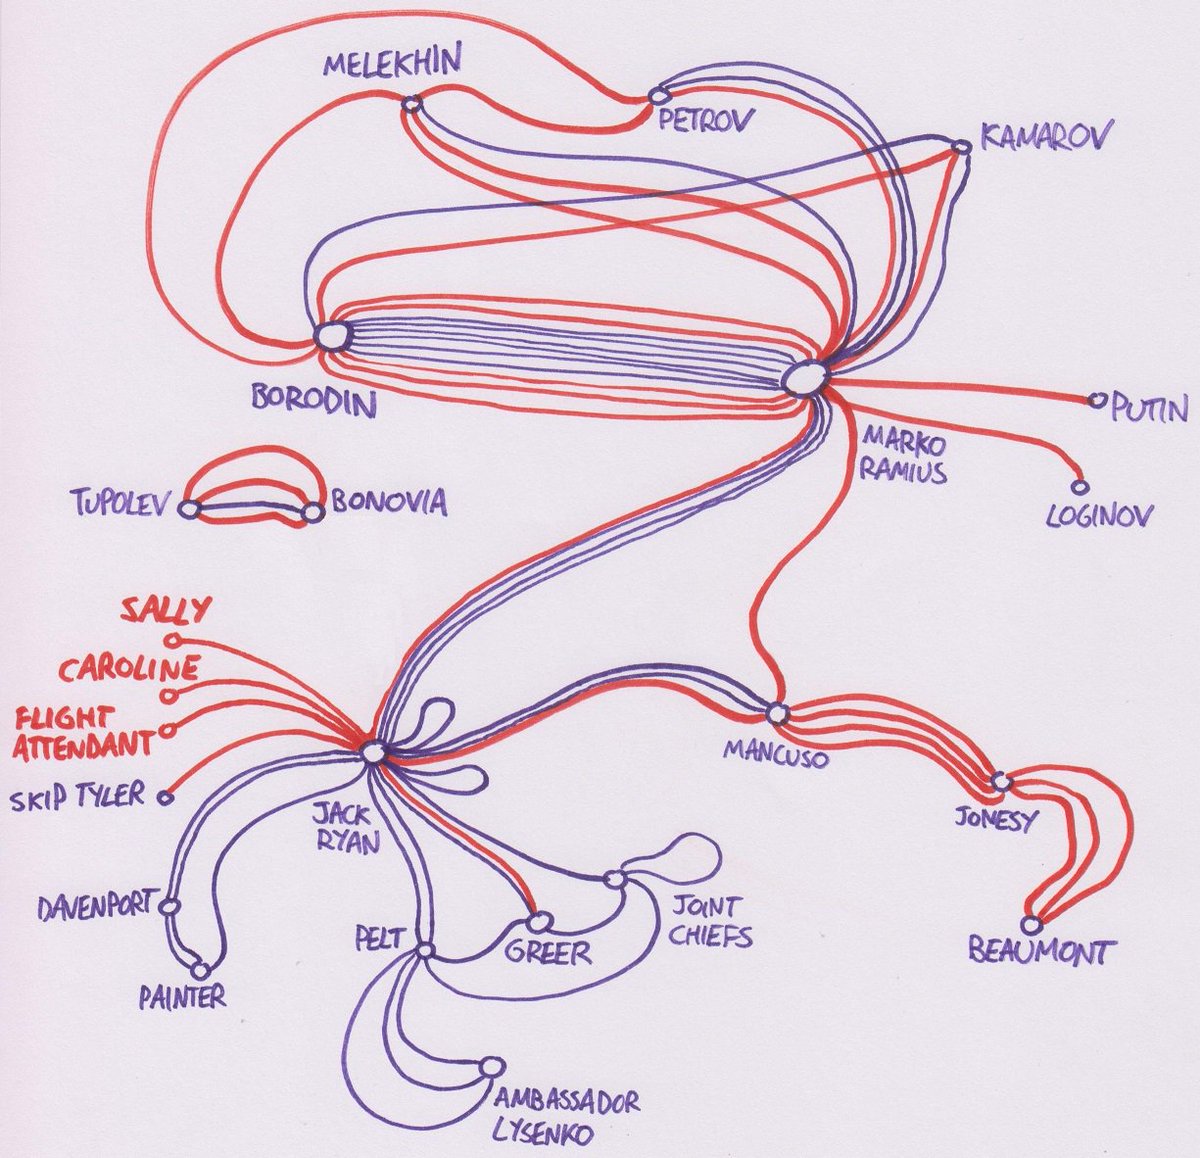 MELEKHIN
PETROV
KAMAROV
BORODIN
PUTIN
MARKO
RAMIUS
LOGINOV
TUPOLEV
BONOVIA
SALLY
CAROLINE
FLIGHT
ATTENDANT
SKIP TYLER
JACK
RYAN
MANCUSO
JONESY
DAVENPORT
PAINTER
PELT
GREER
JOINT
CHIEFS
BEAUMONT
AMBASSADOR
LYSENKO